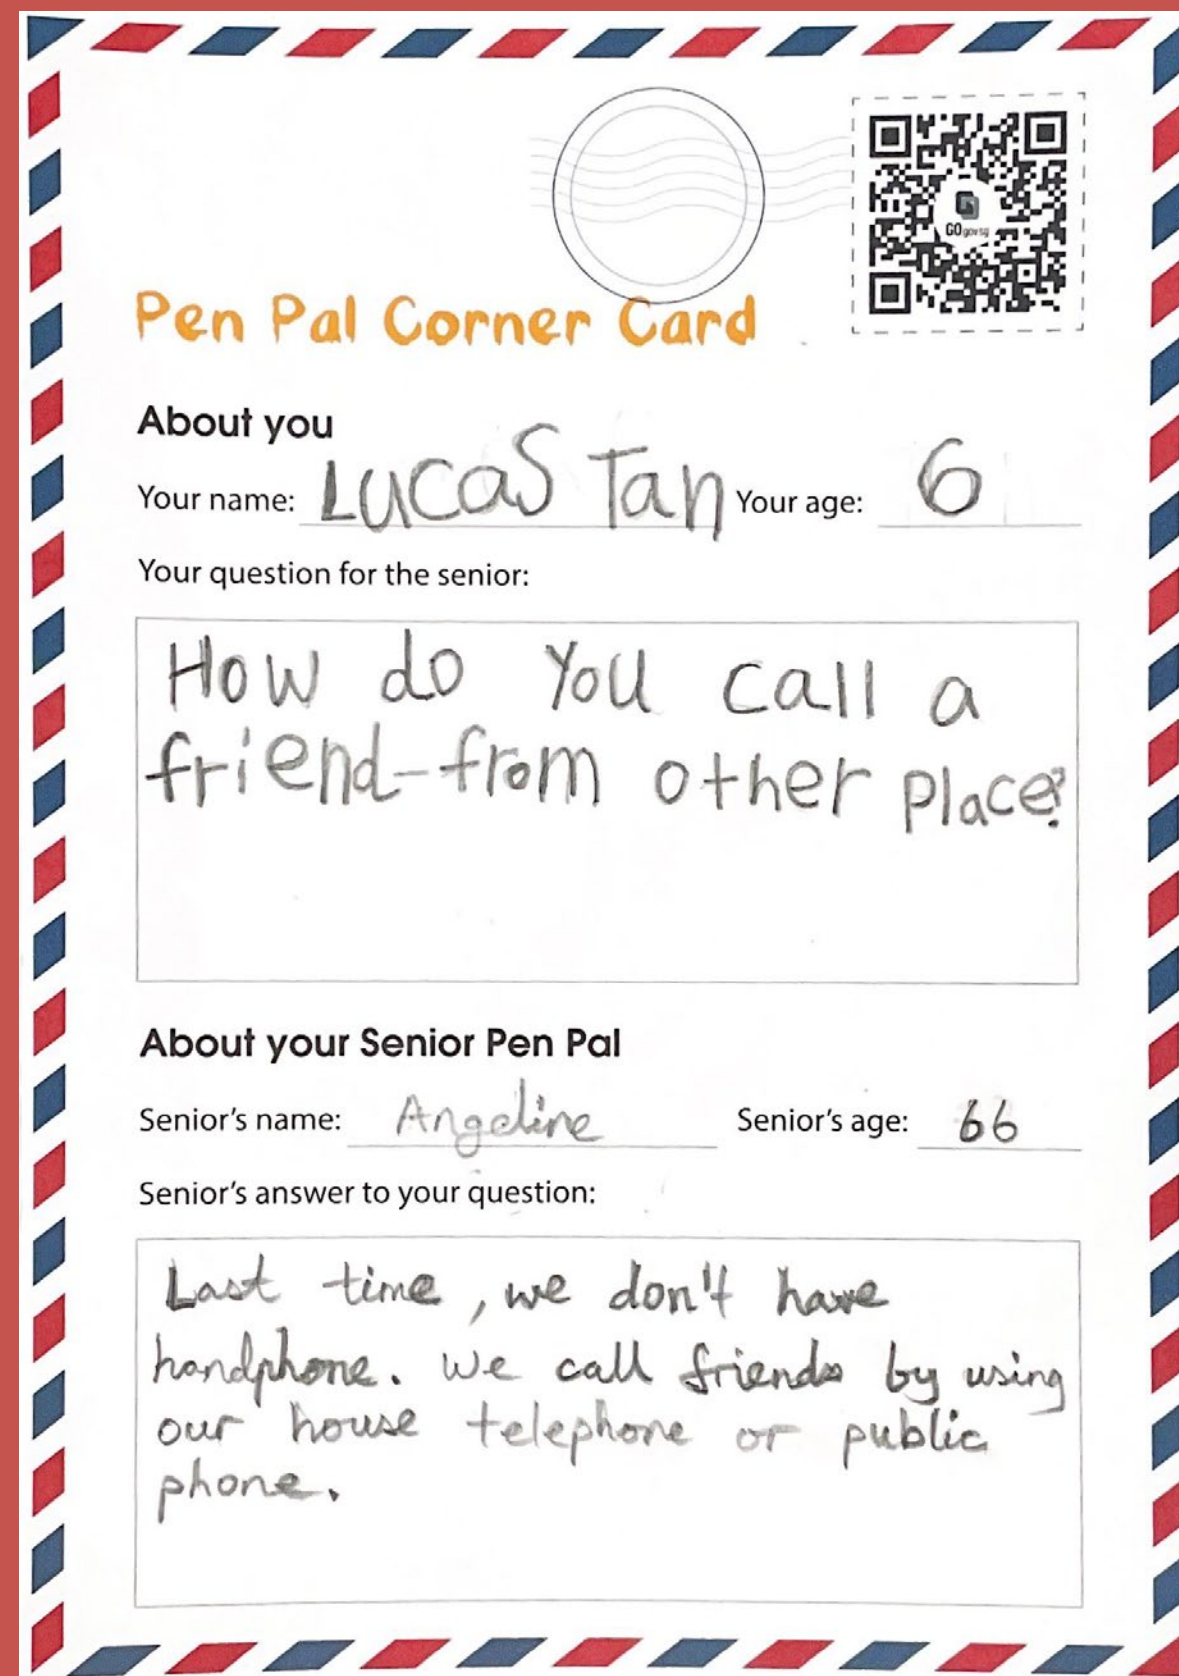 GOgovsg
Pen Pal Corner Card
About you
Your name: Lucas Tan Your age: 6
Your question for the senior:
How do you call a
friend-from other place?
About your Senior Pen Pal
Senior's name: Angeline Senior's age: 66
Senior's answer to your question:
Last time, we don't have
handphone. We call friends by using
our house telephone or public
phone.